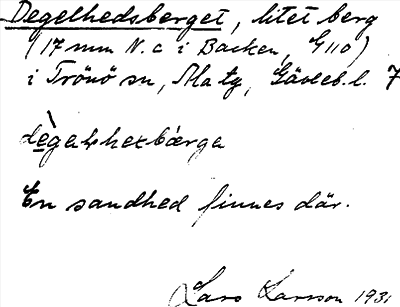 Degelhedsberget, litet berg
(17 mm N. c i Backen, G110)
i Trönö sn, Ala tg, Gävleb. l. 7
En sandhed finnes där.
Lars Larsson 1931